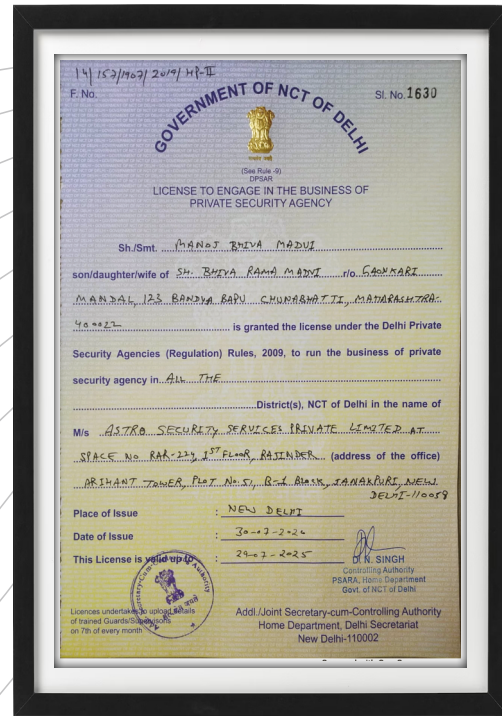 14/157/1907/2019/HP-II
F. No.
Sl. No. 1630
GOVERNMENT OF NCT OF DELHI
सत्यमेव जयते
(See Rule -9)
DPSAR
LICENSE TO ENGAGE IN THE BUSINESS OF
PRIVATE SECURITY AGENCY
Sh./Smt. MANOJ BHIVA MADVI
son/daughter/wife of SH. BHIVA RAMA MADVI r/o GAONKARI
MANDAL, 123 BANDYA BAPU CHUNABHATTI, MAHARASHTRA-
400022 is granted the license under the Delhi Private
Security Agencies (Regulation) Rules, 2009, to run the business of private
security agency in ALL THE
District(s), NCT of Delhi in the name of
M/s ASTRO SECURITY SERVICES PRIVATE LIMITED AT
SPACE No RAR-224, 1ST FLOOR, RAJINDER (address of the office)
ARIHANT TOWER, PLOT No. 51, B-1 BLOCK, JANAKPURI, NEW
DELHI-110059
Place of Issue : NEW DELHI
Date of Issue : 30-07-2020
This License is valid up to : 29-07-2025
D. N. SINGH
Controlling Authority
PSARA, Home Department
Govt. of NCT of Delhi
Licences undertakes to upload details
of trained Guards/Supervisors
on 7th of every month
Addl./Joint Secretary-cum-Controlling Authority
Home Department, Delhi Secretariat
New Delhi-110002